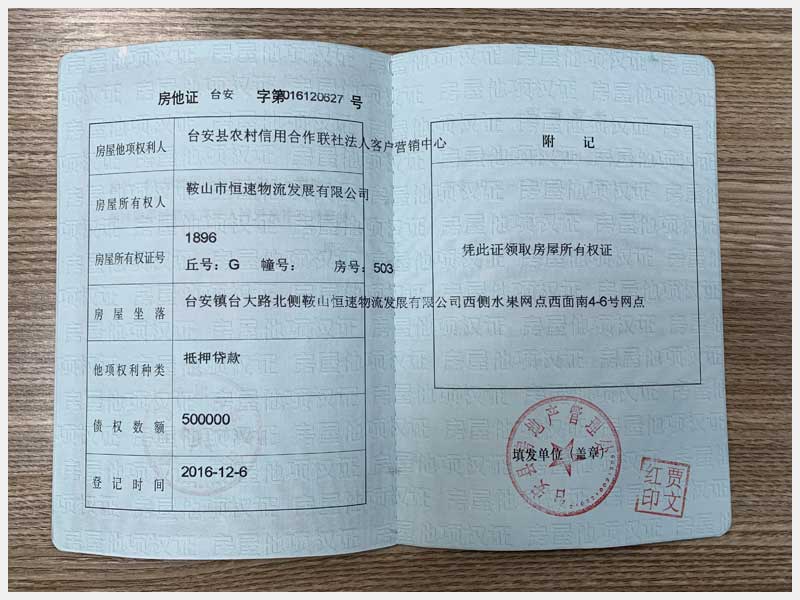 房他证 台安 字第016120627 号
房屋他项权利人 台安县农村信用合作联社法人客户营销中心
房屋所有权人 鞍山市恒速物流发展有限公司
房屋所有权证号 1896
丘号：G 幢号： 房号：503
房屋坐落 台安镇台大路北侧鞍山恒速物流发展有限公司西侧水果网点西面南4-6号网点
他项权利种类 抵押贷款
债权数额 500000
登记时间 2016-12-6
附 记
凭此证领取房屋所有权证
填发单位（盖章）
台安县房地产管理
贾文红印